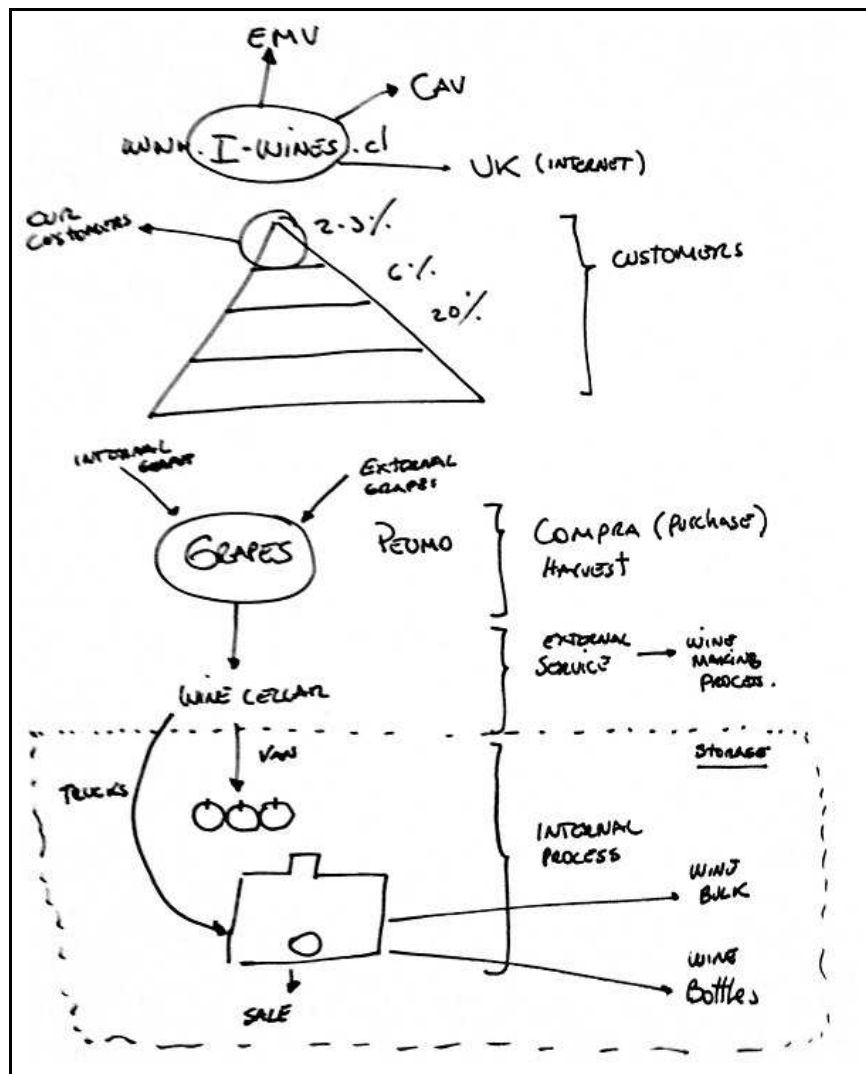 EMV
CAV
www.I-WINES.cl
UK (INTERNET)
OUR
CUSTOMERS
2-3%
6%
20%
CUSTOMERS
INTERNAL
EXTERNAL
GRAPES
GRAPES
PEUMO
COMPRA (PURCHASE)
HARVEST
EXTERNAL
SERVICE
WINE
MAKING
PROCESS.
WINE CELLAR
VAN
STORAGE
TRUCKS
INTERNAL
PROCESS
WINE
BULK
WINE
Bottles
SALE